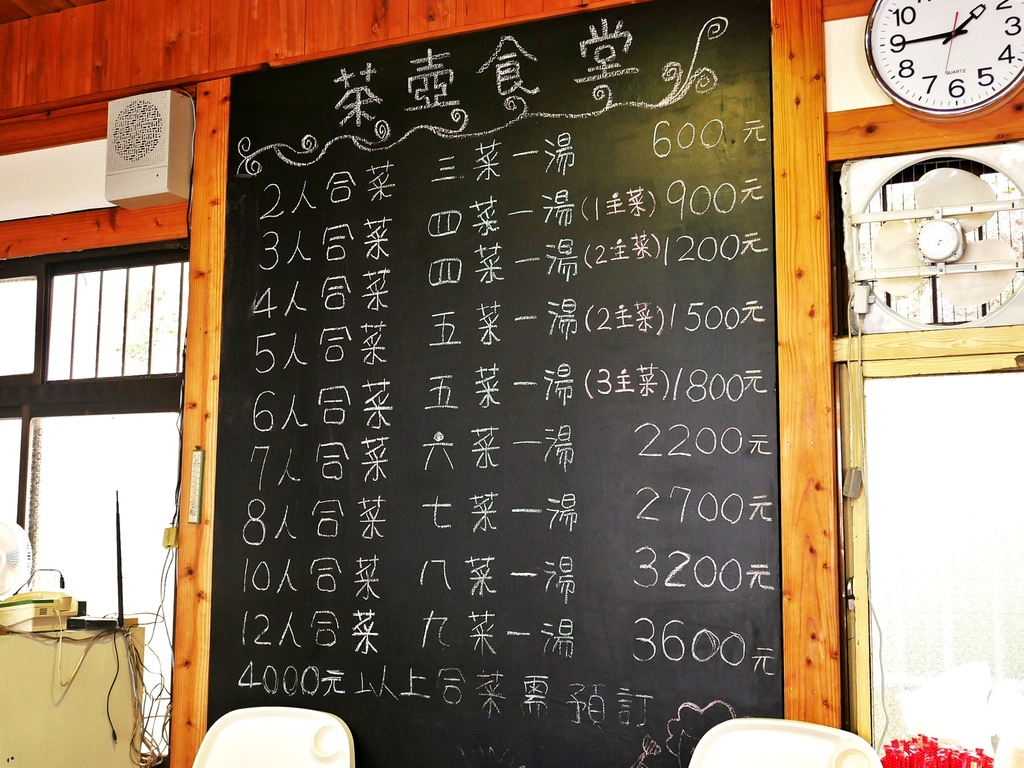 茶壺食堂
2人合菜 三菜一湯 600元
3人合菜 四菜一湯(1主菜)900元
4人合菜 四菜一湯(2主菜)1200元
5人合菜 五菜一湯(2主菜)1500元
6人合菜 五菜一湯(3主菜)1800元
7人合菜 六菜一湯 2200元
8人合菜 七菜一湯 2700元
10人合菜 八菜一湯 3200元
12人合菜 九菜一湯 3600元
4000元以上合菜需預訂
10 2
9 3
8 4
7 6 5
QUARTZ